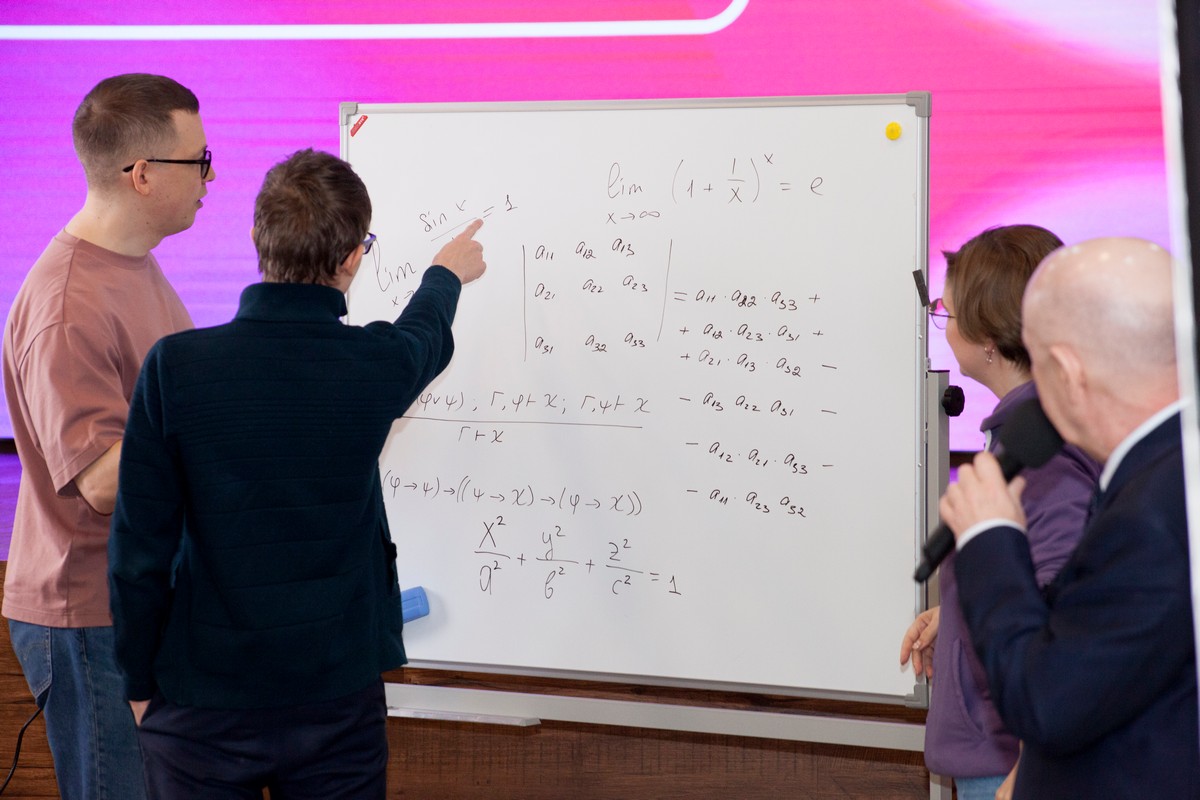 lim (1 + 1/x)^x = e
x→∞
sin x = 1
lim
x→
| a11 a12 a13 |
| a21 a22 a23 |
| a31 a32 a33 |
= a11 · a22 · a33 +
+ a12 · a23 · a31 +
+ a21 · a13 · a32 −
− a13 a22 a31 −
− a12 · a21 · a33 −
− a11 · a23 a32
(φ∨ψ) ; Γ,φ⊢χ ; Γ,ψ⊢χ
Γ⊢χ
(φ→ψ)→((ψ→χ)→(φ→χ))
x²/a² + y²/b² + z²/c² = 1